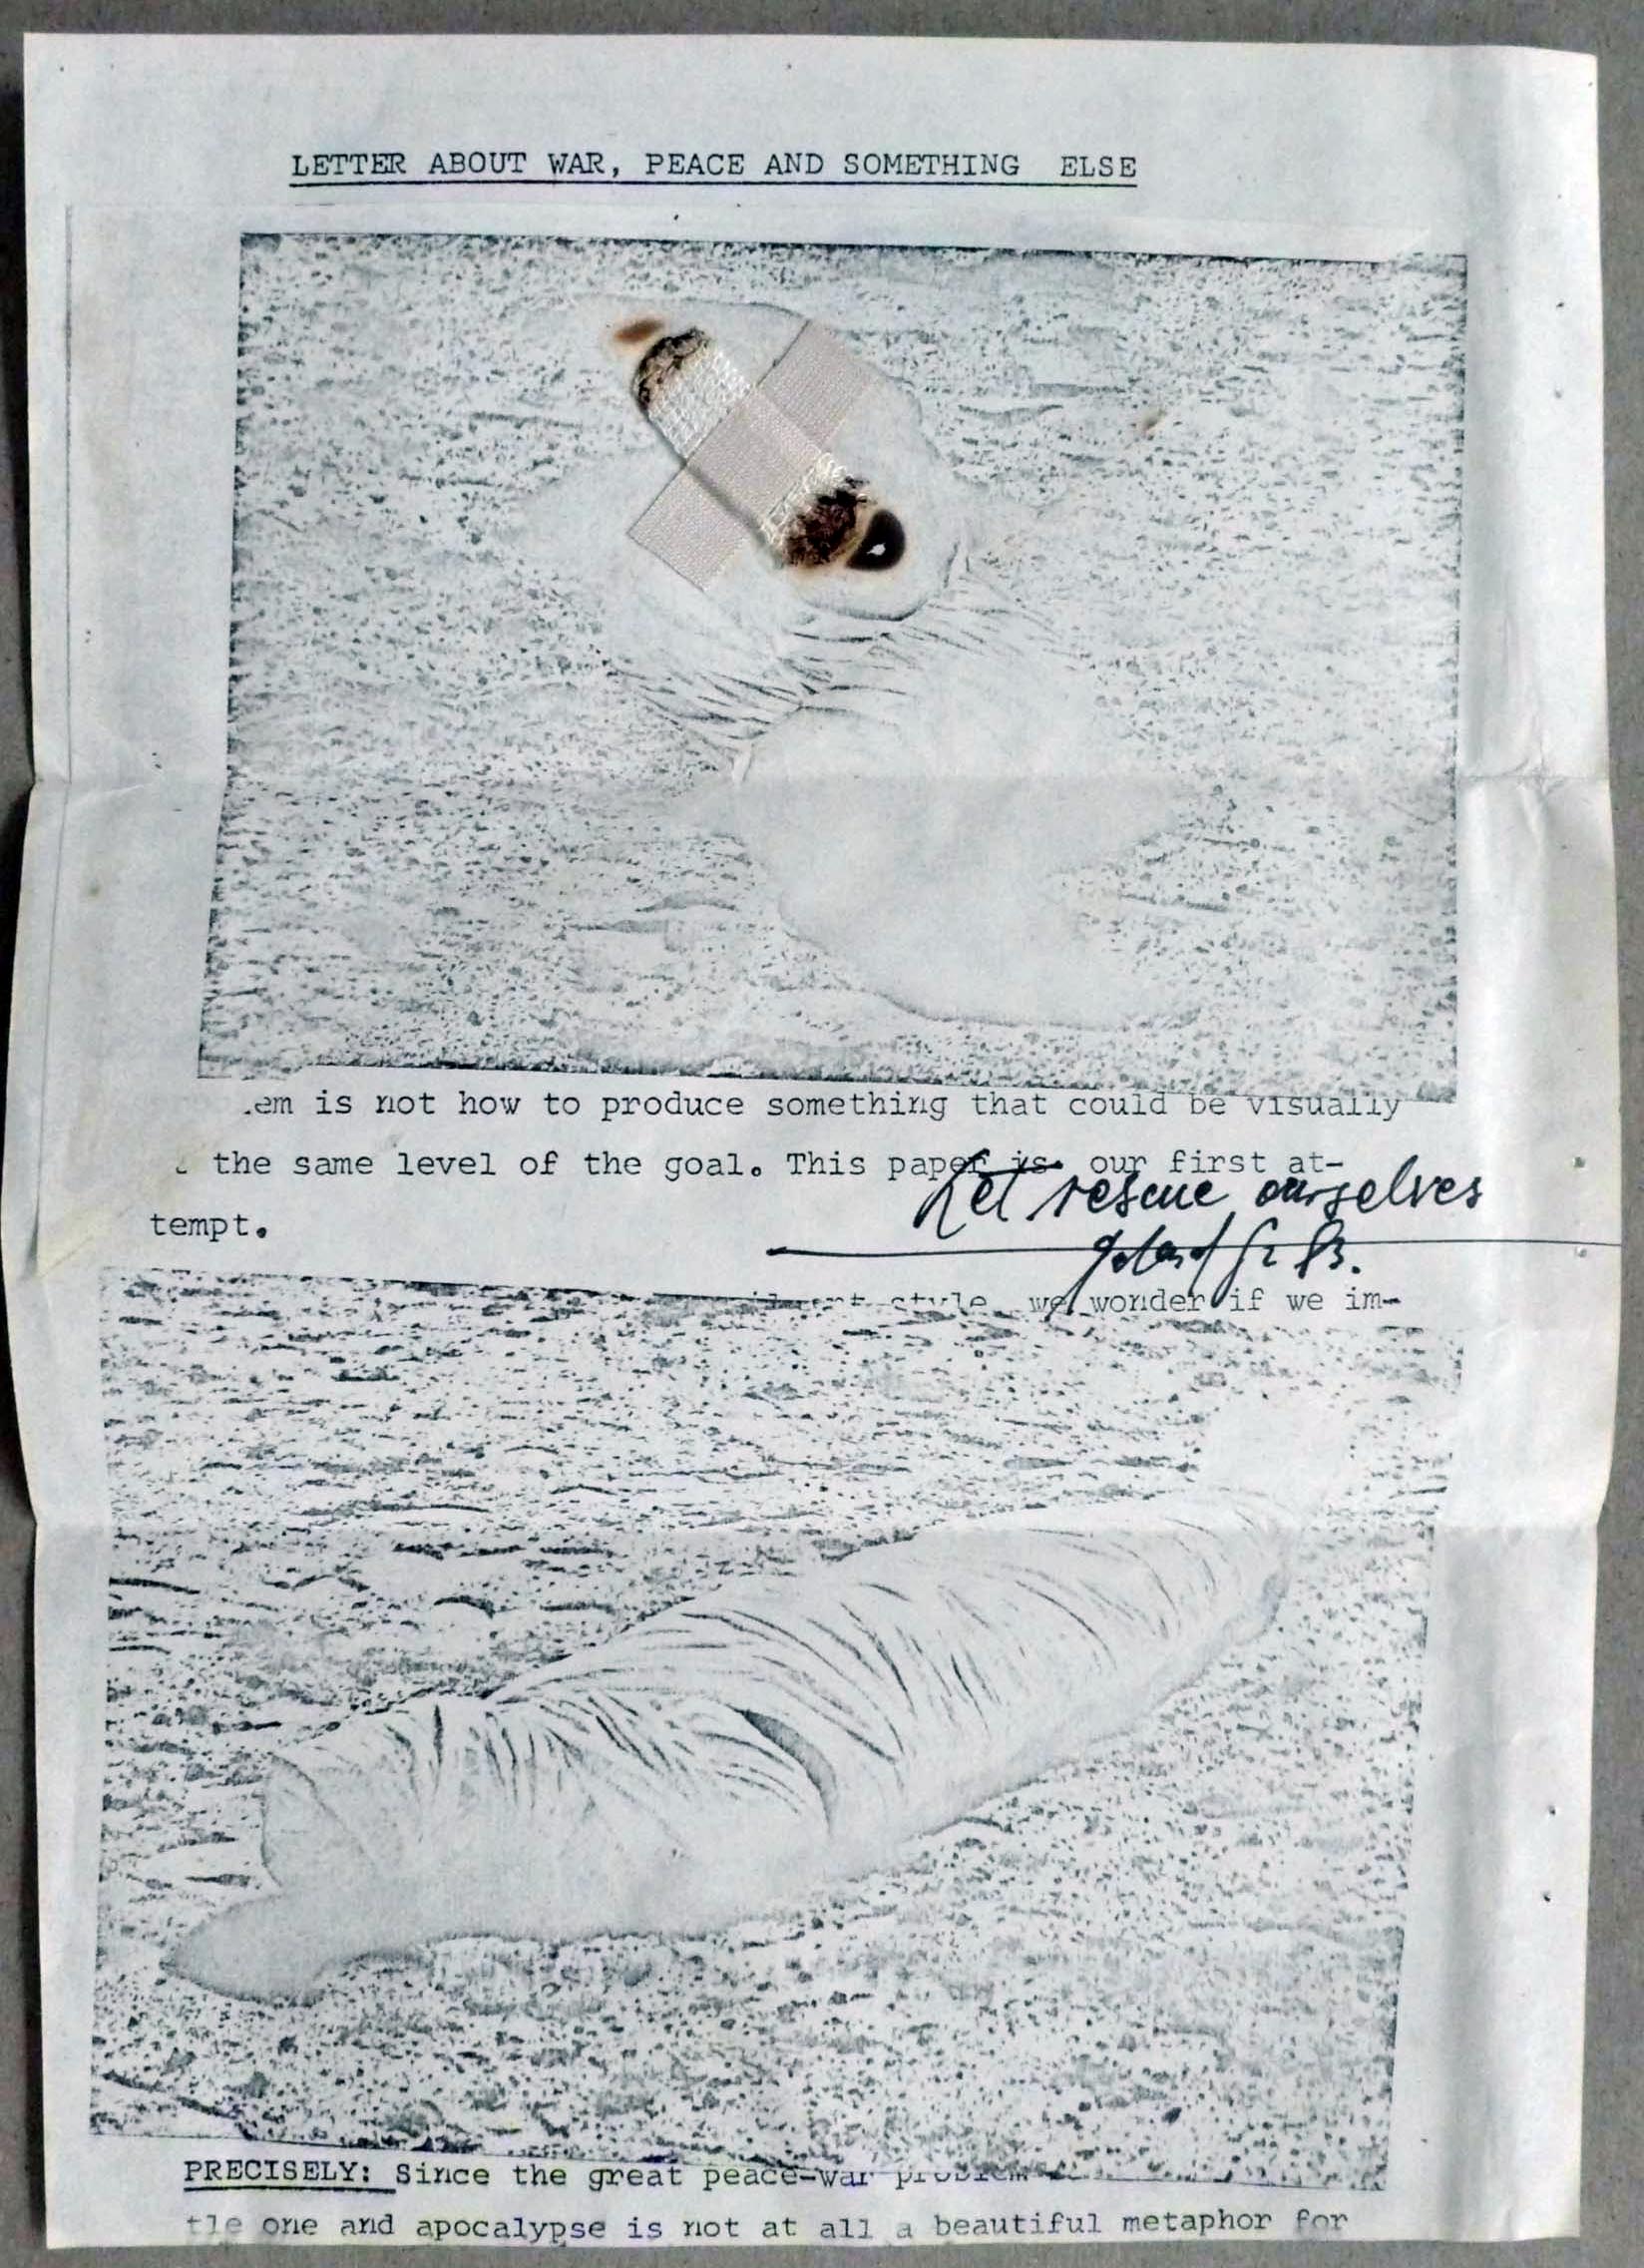 LETTER ABOUT WAR, PEACE AND SOMETHING ELSE
em is not how to produce something that could be visually
the same level of the goal. This paper is our first at-
Let rescue ourselves
tempt.
style, we wonder if we im-
PRECISELY: Since the great peace-war problem
tle one and apocalypse is not at all a beautiful metaphor for